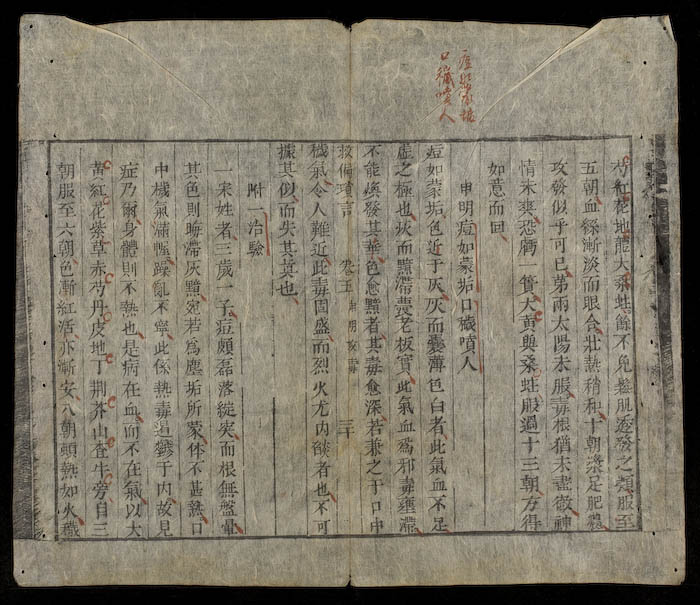 痘如蒙垢
口穢噴人
芍紅花地龍大桑蛀餘不免鬆肌透發之類服至
五朝血縧漸淡而眼合壯熱稍和十朝漿足肥體
攻發似乎可已第兩太陽未服毒根猶未盡徹神
情未爽恐臍 簣大黃與桑蛀服過十三朝方得
如意而回
申明痘如蒙垢口穢噴人
痘如蒙垢色近于灰灰而薄色白者此氣血不足
虛之極也灰而黯滯蒼老板實此氣血爲邪毒壅滯
不能煥發其華色愈黯者其毒愈深若兼之于口中
救偏瑣言 卷五 申明痧毒 三十
穢氣令人難近此毒固盛而烈火尤内燄者也不可
據其似而失其真也
附一治驗
一宋姓者三歲一子痘頗磊落綻突而根無盤暈
其色則晦滯灰黯宛若爲塵垢所蒙体不甚熱口
中穢氣滿幄躁亂不寧此係熱毒遏鬱于内故見
症乃爾身體則不熱也是病在血而不在氣以大
黃紅花紫草赤芍丹皮地丁荆芥山査牛旁自三
朝服至六朝色漸紅活亦漸安八朝頭熱如火穢